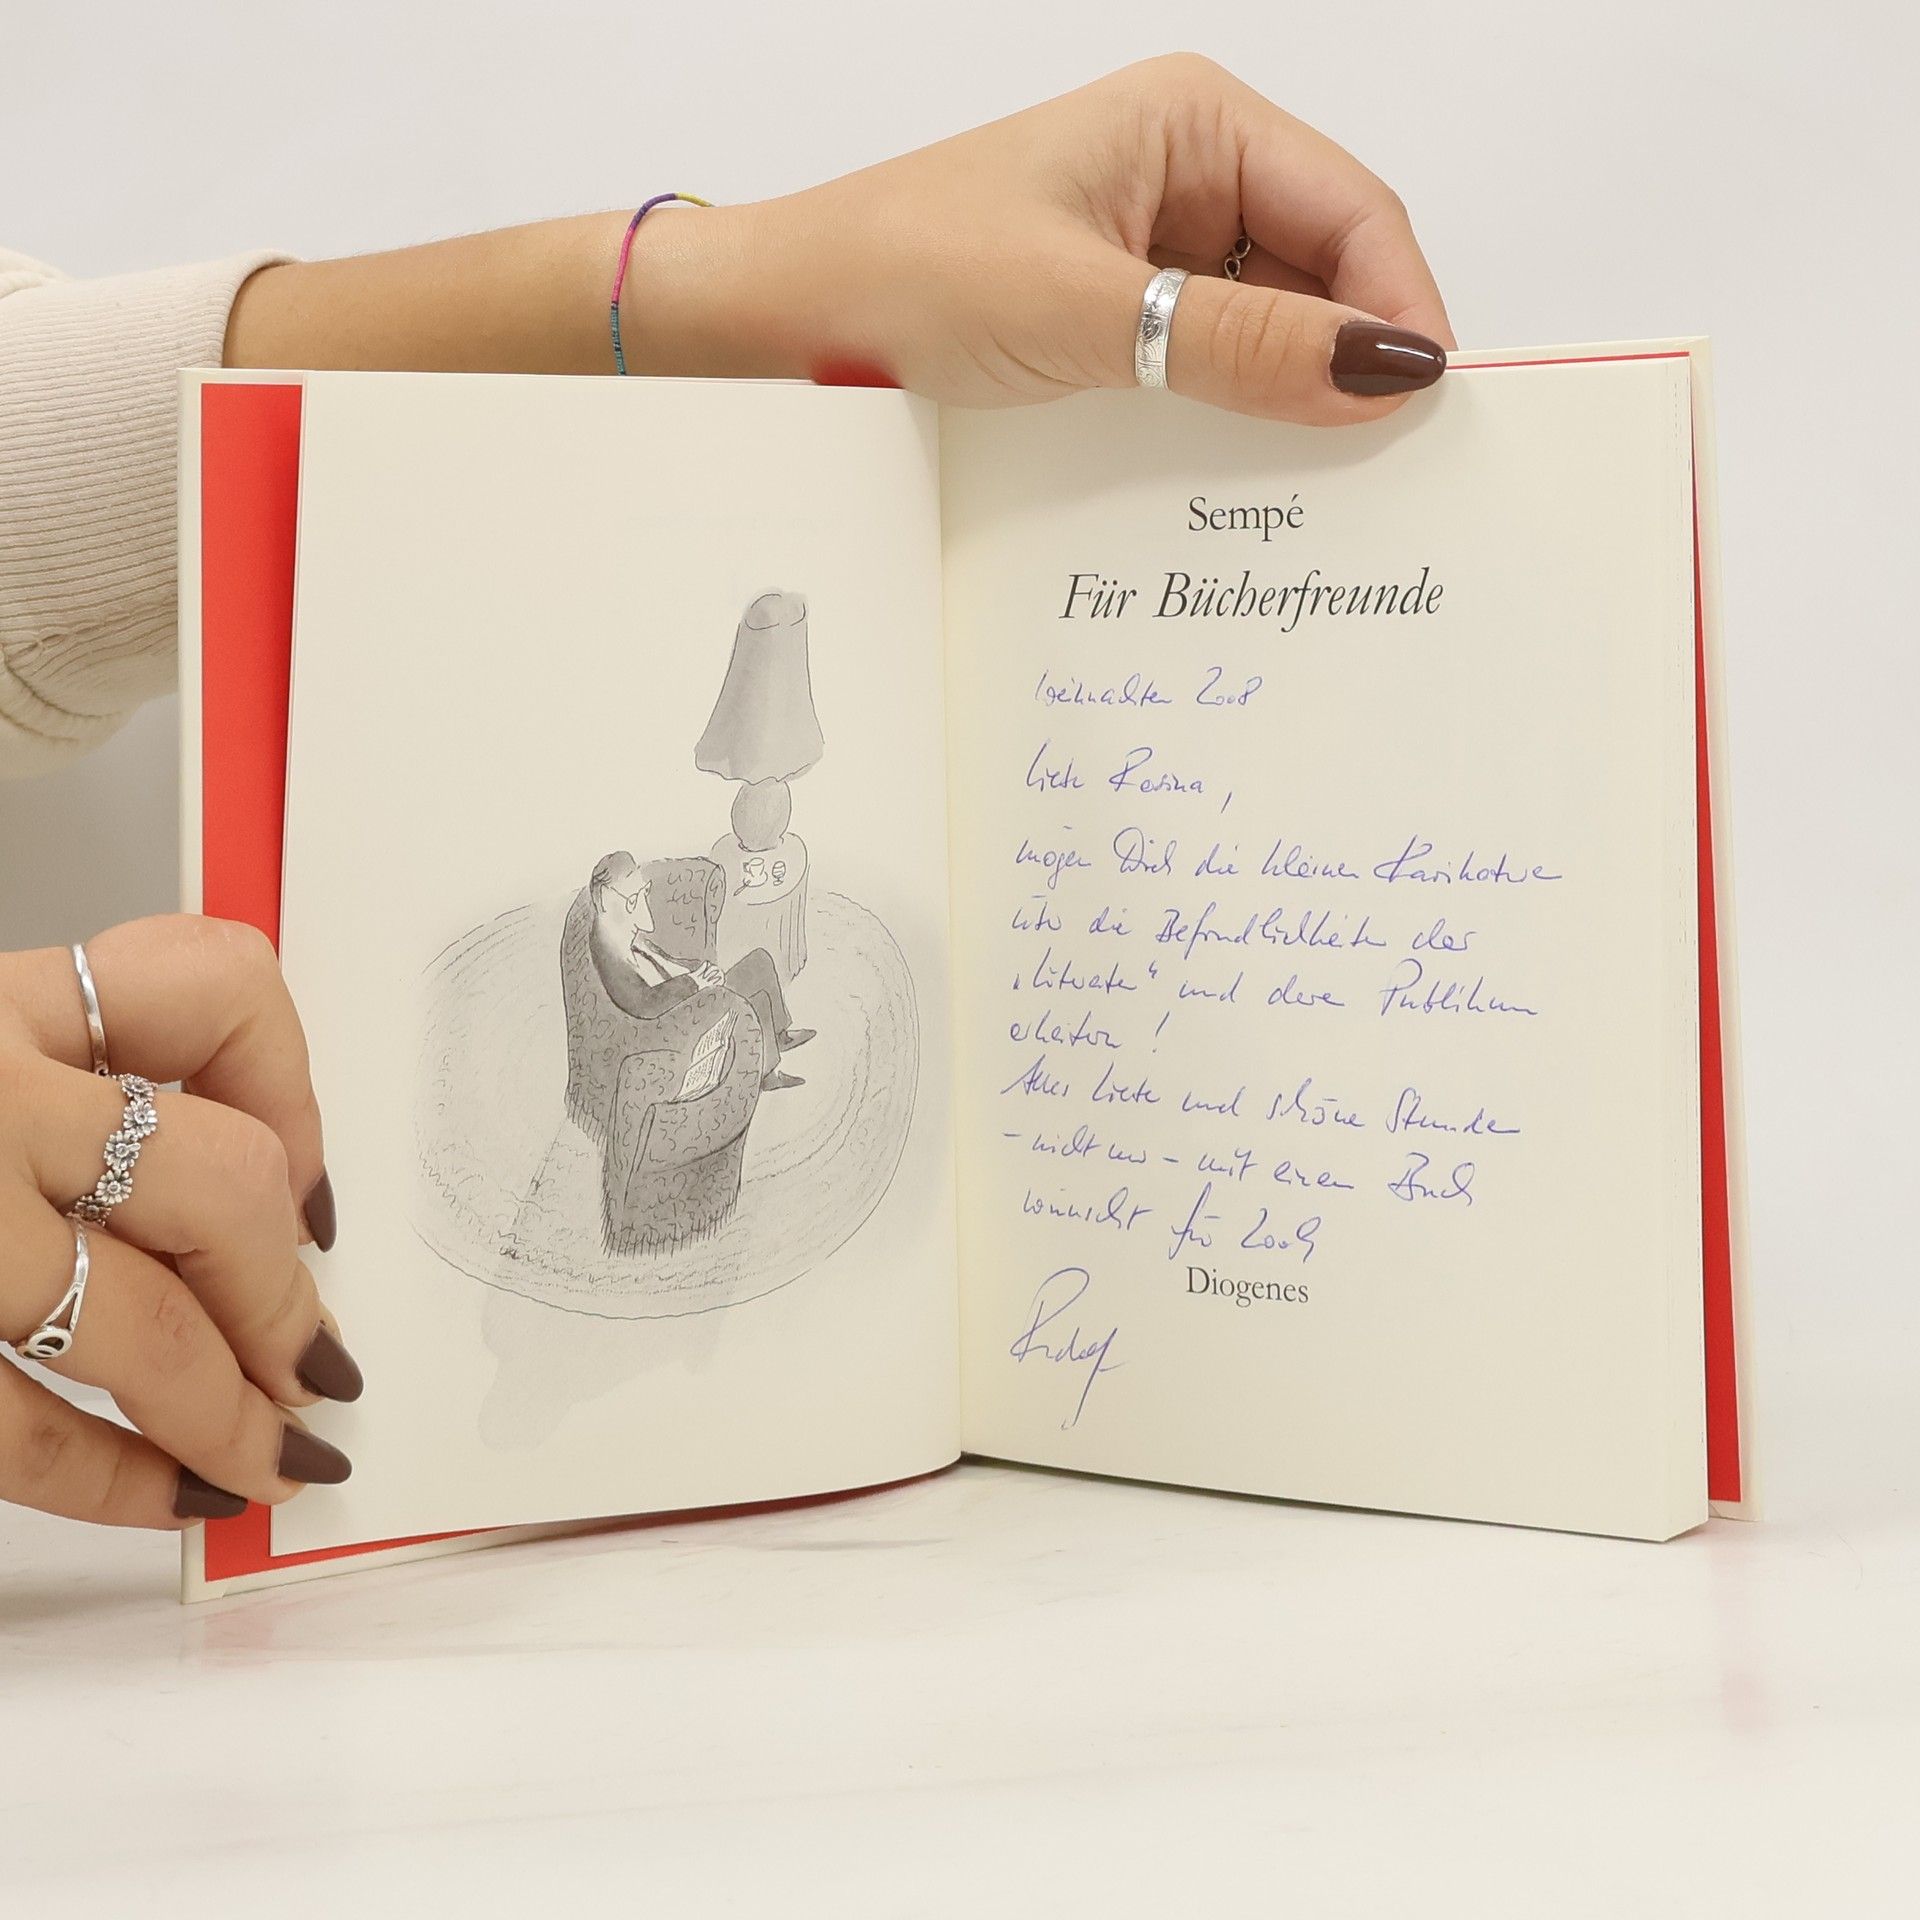 Sempé
Für Bücherfreunde
Weihnachten 2008
Liebe Rosina,
mögen Dich die kleinen Karikaturen
über die Befindlichkeiten der
„Literaten“ und deren Publikum
erheitern!
Alles Liebe und schöne Stunden
- nicht nur - mit einem Buch
wünscht für 2009
Diogenes
Rudolf